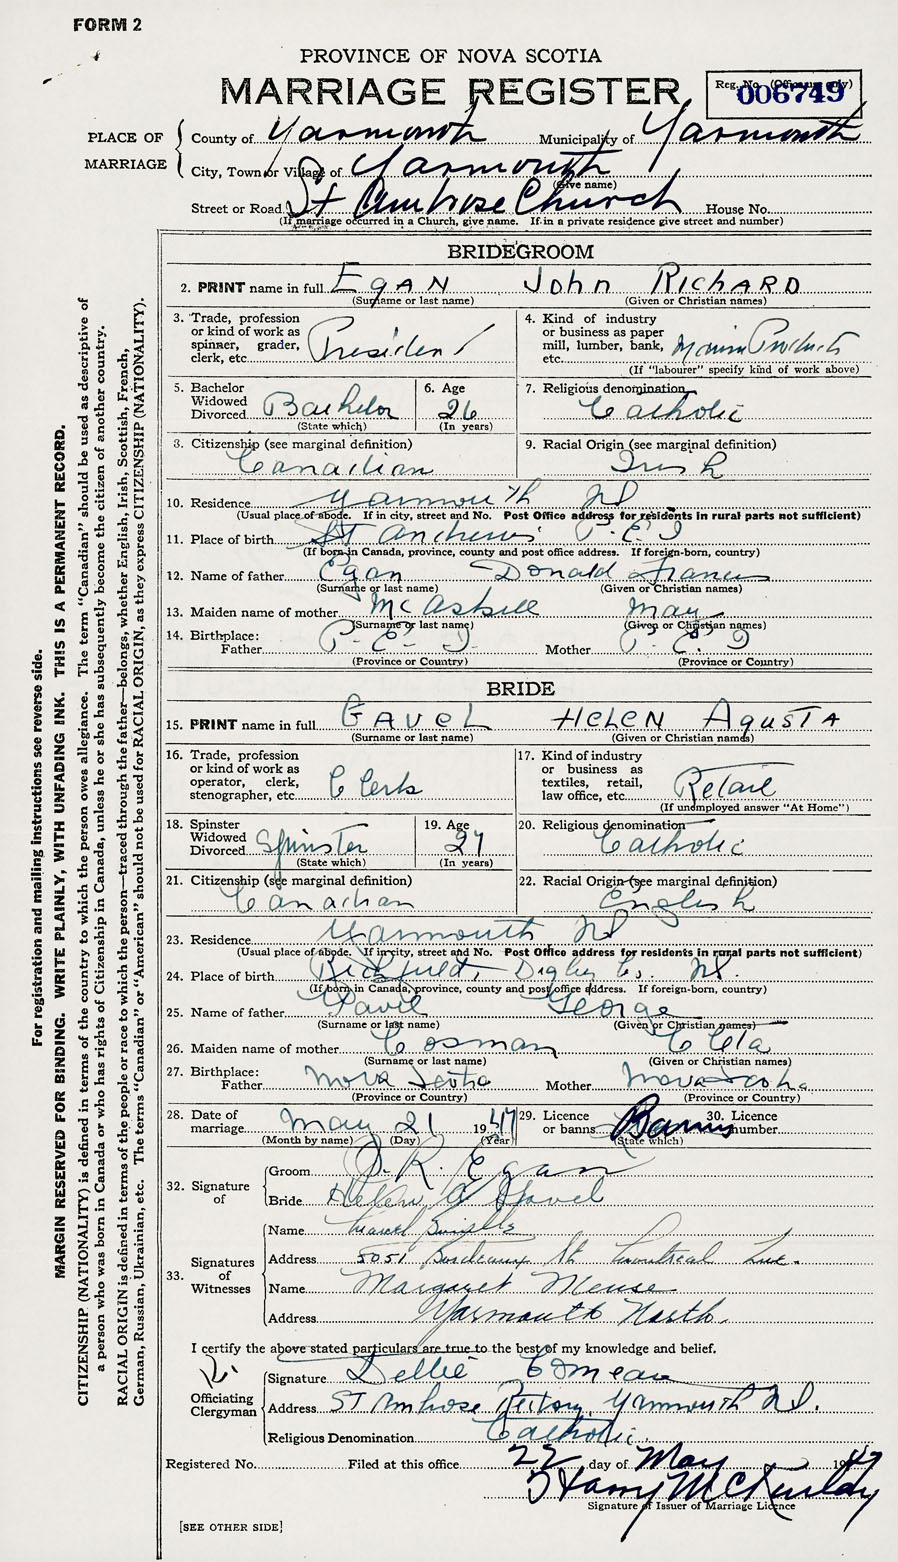 FORM 2
PROVINCE OF NOVA SCOTIA
MARRIAGE REGISTER
Reg. No. (Office use only)
006749
PLACE OF MARRIAGE
County of Yarmouth Municipality of Yarmouth
City, Town or Village of Yarmouth
(Give name)
Street or Road St Ambrose Church House No.
(If marriage occurred in a Church, give name. If in a private residence give street and number)
BRIDEGROOM
2. PRINT name in full EgAN John RichARD
(Surname or last name) (Given or Christian names)
3. Trade, profession or kind of work as spinner, grader, clerk, etc. President
4. Kind of industry or business as paper mill, lumber, bank, etc. Products
(If "labourer" specify kind of work above)
5. Bachelor Widowed Divorced Bachelor
(State which)
6. Age 26
(In years)
7. Religious denomination Catholic
8. Citizenship (see marginal definition) Canadian
9. Racial Origin (see marginal definition) Irish
10. Residence Yarmouth NS
(Usual place of abode. If in city, street and No. Post Office address for residents in rural parts not sufficient)
11. Place of birth St Andrews P.E.I
(If born in Canada, province, county and post office address. If foreign-born, country)
12. Name of father Egan Donald Francis
(Surname or last name) (Given or Christian names)
13. Maiden name of mother McAskill May
(Surname or last name) (Given or Christian names)
14. Birthplace: Father P.E.I. Mother P.E.I
(Province or Country) (Province or Country)
BRIDE
15. PRINT name in full GAVEL HELEN AgUSTA
(Surname or last name) (Given or Christian names)
16. Trade, profession or kind of work as operator, clerk, stenographer, etc. Clerk
17. Kind of industry or business as textiles, retail, law office, etc. Retail
(If unemployed answer "At Home")
18. Spinster Widowed Divorced Spinster
(State which)
19. Age 27
(In years)
20. Religious denomination Catholic
21. Citizenship (see marginal definition) Canadian
22. Racial Origin (see marginal definition) English
23. Residence Yarmouth NS
(Usual place of abode. If in city, street and No. Post Office address for residents in rural parts not sufficient)
24. Place of birth Digby Co. NS.
(If born in Canada, province, county and post office address. If foreign-born, country)
25. Name of father George
(Surname or last name) (Given or Christian names)
26. Maiden name of mother Cosman Cleta
(Surname or last name) (Given or Christian names)
27. Birthplace: Father Nova Scotia Mother Nova Scotia
(Province or Country) (Province or Country)
28. Date of marriage May 21 1947
(Month by name) (Day) (Year)
29. Licence or banns Banns
(State which)
30. Licence number
32. Signature of
Groom J. R. Egan
Bride Helen A Gavel
33. Signatures of Witnesses
Name
Address 5051 Bordeaux St Montreal Que.
Name Margaret Meuse
Address Yarmouth North.
I certify the above stated particulars are true to the best of my knowledge and belief.
Officiating Clergyman
Signature Dellie Comeau
Address ST Ambrose Rectory, Yarmouth NS.
Religious Denomination Catholic.
Registered No. Filed at this office 22 day of May 1947
Harry McKinley
Signature of Issuer of Marriage Licence
[SEE OTHER SIDE]
For registration and mailing instructions see reverse side.
MARGIN RESERVED FOR BINDING. WRITE PLAINLY, WITH UNFADING INK. THIS IS A PERMANENT RECORD.
CITIZENSHIP (NATIONALITY) is defined in terms of the country to which the person owes allegiance. The term "Canadian" should be used as descriptive of
a person who was born in Canada or who has rights of Citizenship in Canada, unless he or she has subsequently become the citizen of another country.
RACIAL ORIGIN is defined in terms of the people or race to which the person—traced through the father—belongs, whether English, Irish, Scottish, French,
German, Russian, Ukrainian, etc. The terms "Canadian" or "American" should not be used for RACIAL ORIGIN, as they express CITIZENSHIP (NATIONALITY).